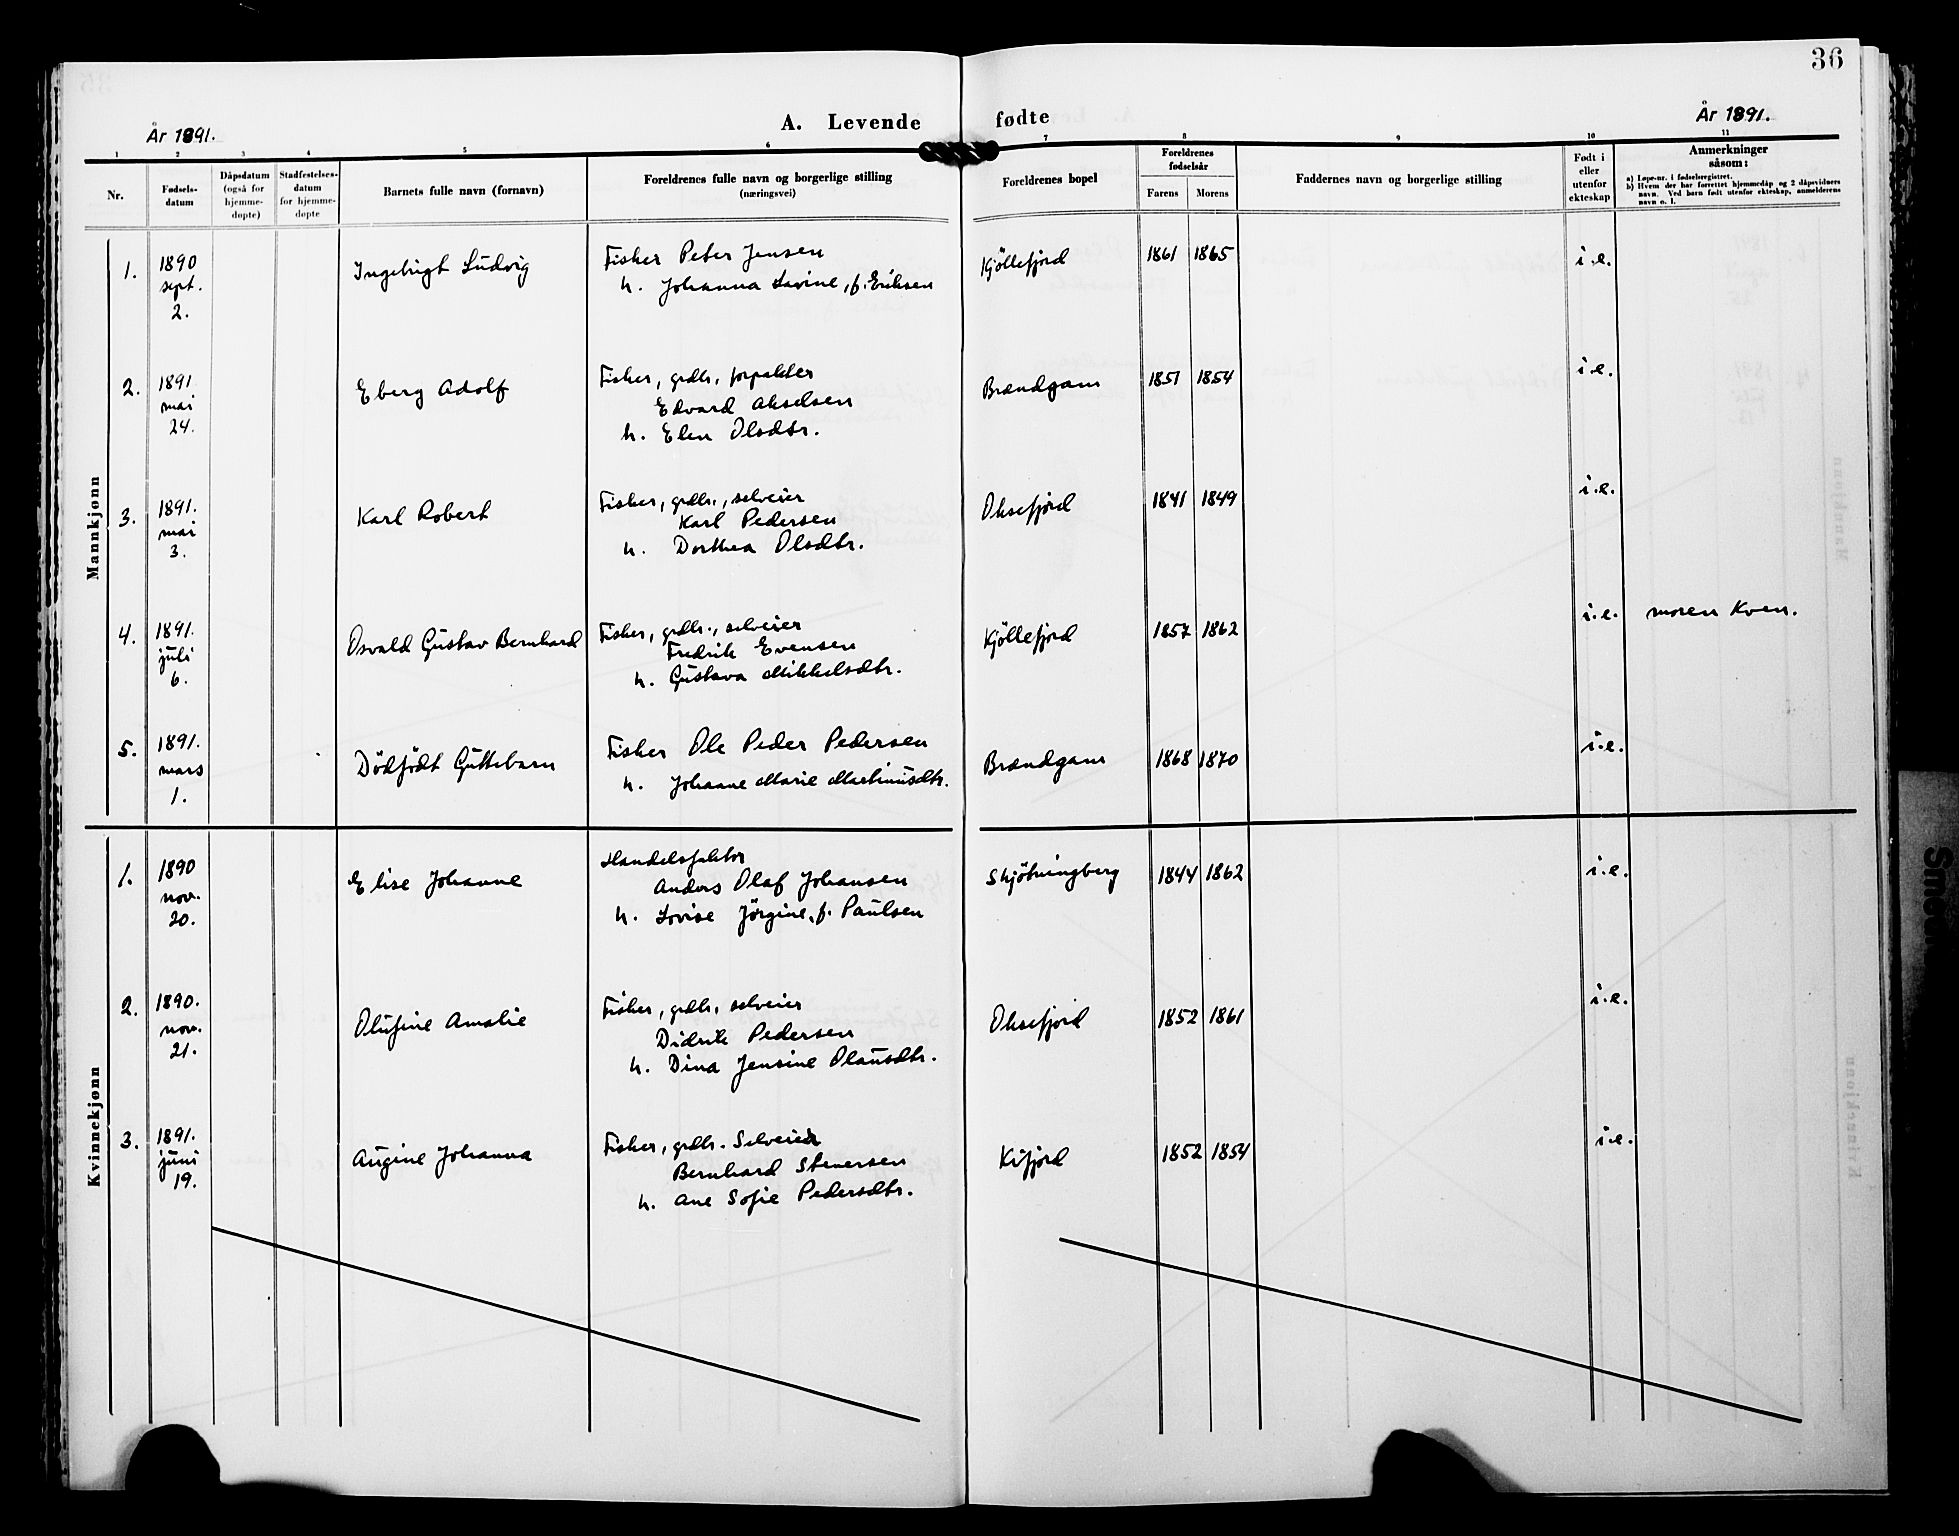 36
År 1891.
A. Levende fødte
År 1891.
1 2 3 4 5 6 7 8 9 10 11
Nr.
Fødsels-
datum
Dåpsdatum
(også for
hjemme-
døpte)
Stadfestelses-
datum
for hjemme-
døpte
Barnets fulle navn (fornavn)
Foreldrenes fulle navn og borgerlige stilling
(næringsvei)
Foreldrenes bopel
Foreldrenes
fødselsår
Farens Morens
Faddernes navn og borgerlige stilling
Født i
eller
utenfor
ekteskap
Anmerkninger
såsom:
a) Løpe-nr. i fødselsregistret.
b) Hvem der har forrettet hjemmedåp og 2 dåpsvidners
navn. Ved barn født utenfor ekteskap, anmelderens
navn o. l.
Mannkjønn
1. 1890 sept. 2. Ingebrigt Ludvig
Fisker Peter Jensen
h. Johanna Lovine, f. Eriksen
Kjöllefjord 1861 1865 i.e.
2. 1891 mai 24. Eberg Adolf
Fisker, grdbr, forpakter
Edvard Akselsen
h. Elen Olsdtr.
Brændgam 1851 1854 i.e.
3. 1891. mai 3. Karl Robert
Fisker, grdbr., selveier
Karl Pedersen
h. Dorthea Olsdtr.
Oksefjord 1841 1849 i.e.
4. 1891. juli 6. Osvald Gustav Bernhard
Fisker, grdbr., selveier
Fredrik Evensen
h. Gustava Mikkelsdtr.
Kjöllefjord 1857 1862 i.e. moren Kven.
5. 1891. mars 1. Dödfödt Guttebarn
Fisker Ole Peder Pedersen
h. Johanne Marie Martinusdtr.
Brændgam 1868 1870 i.e.
Kvinnekjønn
1. 1890 nov. 20. Elise Johanne
Handelsfaktor
Anders Olaf Johansen
h. Lovise Jörgine, f. Paulsen
Skjötningberg 1844 1862 i.e.
2. 1890. nov. 21. Olufine Amalie
Fisker, grdbr, selveier
Didrik Pedersen
h. Dina Jensine Olausdtr.
Oksefjord 1852 1861 i.e.
3. 1891. juni 19. Augine Johanna
Fisker, grdbr. Selveier
Bernhard Stenersen
h. Ane Sofie Pedersdtr.
Kifjord 1852 1854 i.e.